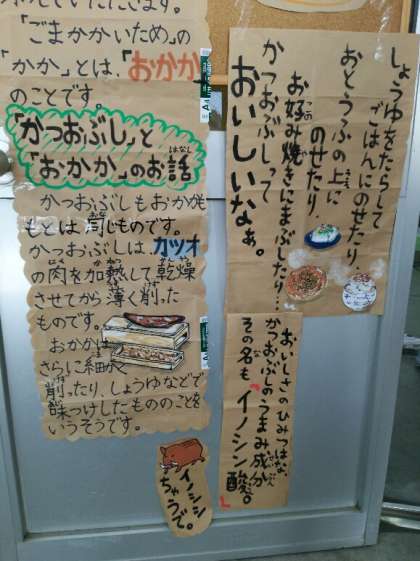 「ごまかかいため」の
「かか」とは、「おかか」
のことです。
「かつおぶし」と
「おかか」のお話
はなし
かつおぶしもおかかも
もとは同じものです。
かつおぶしは、カツオ
の肉を加熱して乾燥
させてから薄く削った
ものです。
おかかは
さらに細かく
削ったり、しょうゆなどで
味つけしたもののことを
いうそうです。
しょうゆをたらして
ごはんにのせたり、
おとうふの上に
のせたり、
お好み焼きにまぶしたり…
かつおぶしって
おいしいなぁ。
おいしさのひみつはな、
かつおぶしのうまみ成分
その名も「イノシン酸。」
イノシシ
ちゃうで。